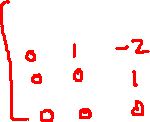 0 1 -2
0 0 1
0 0 0